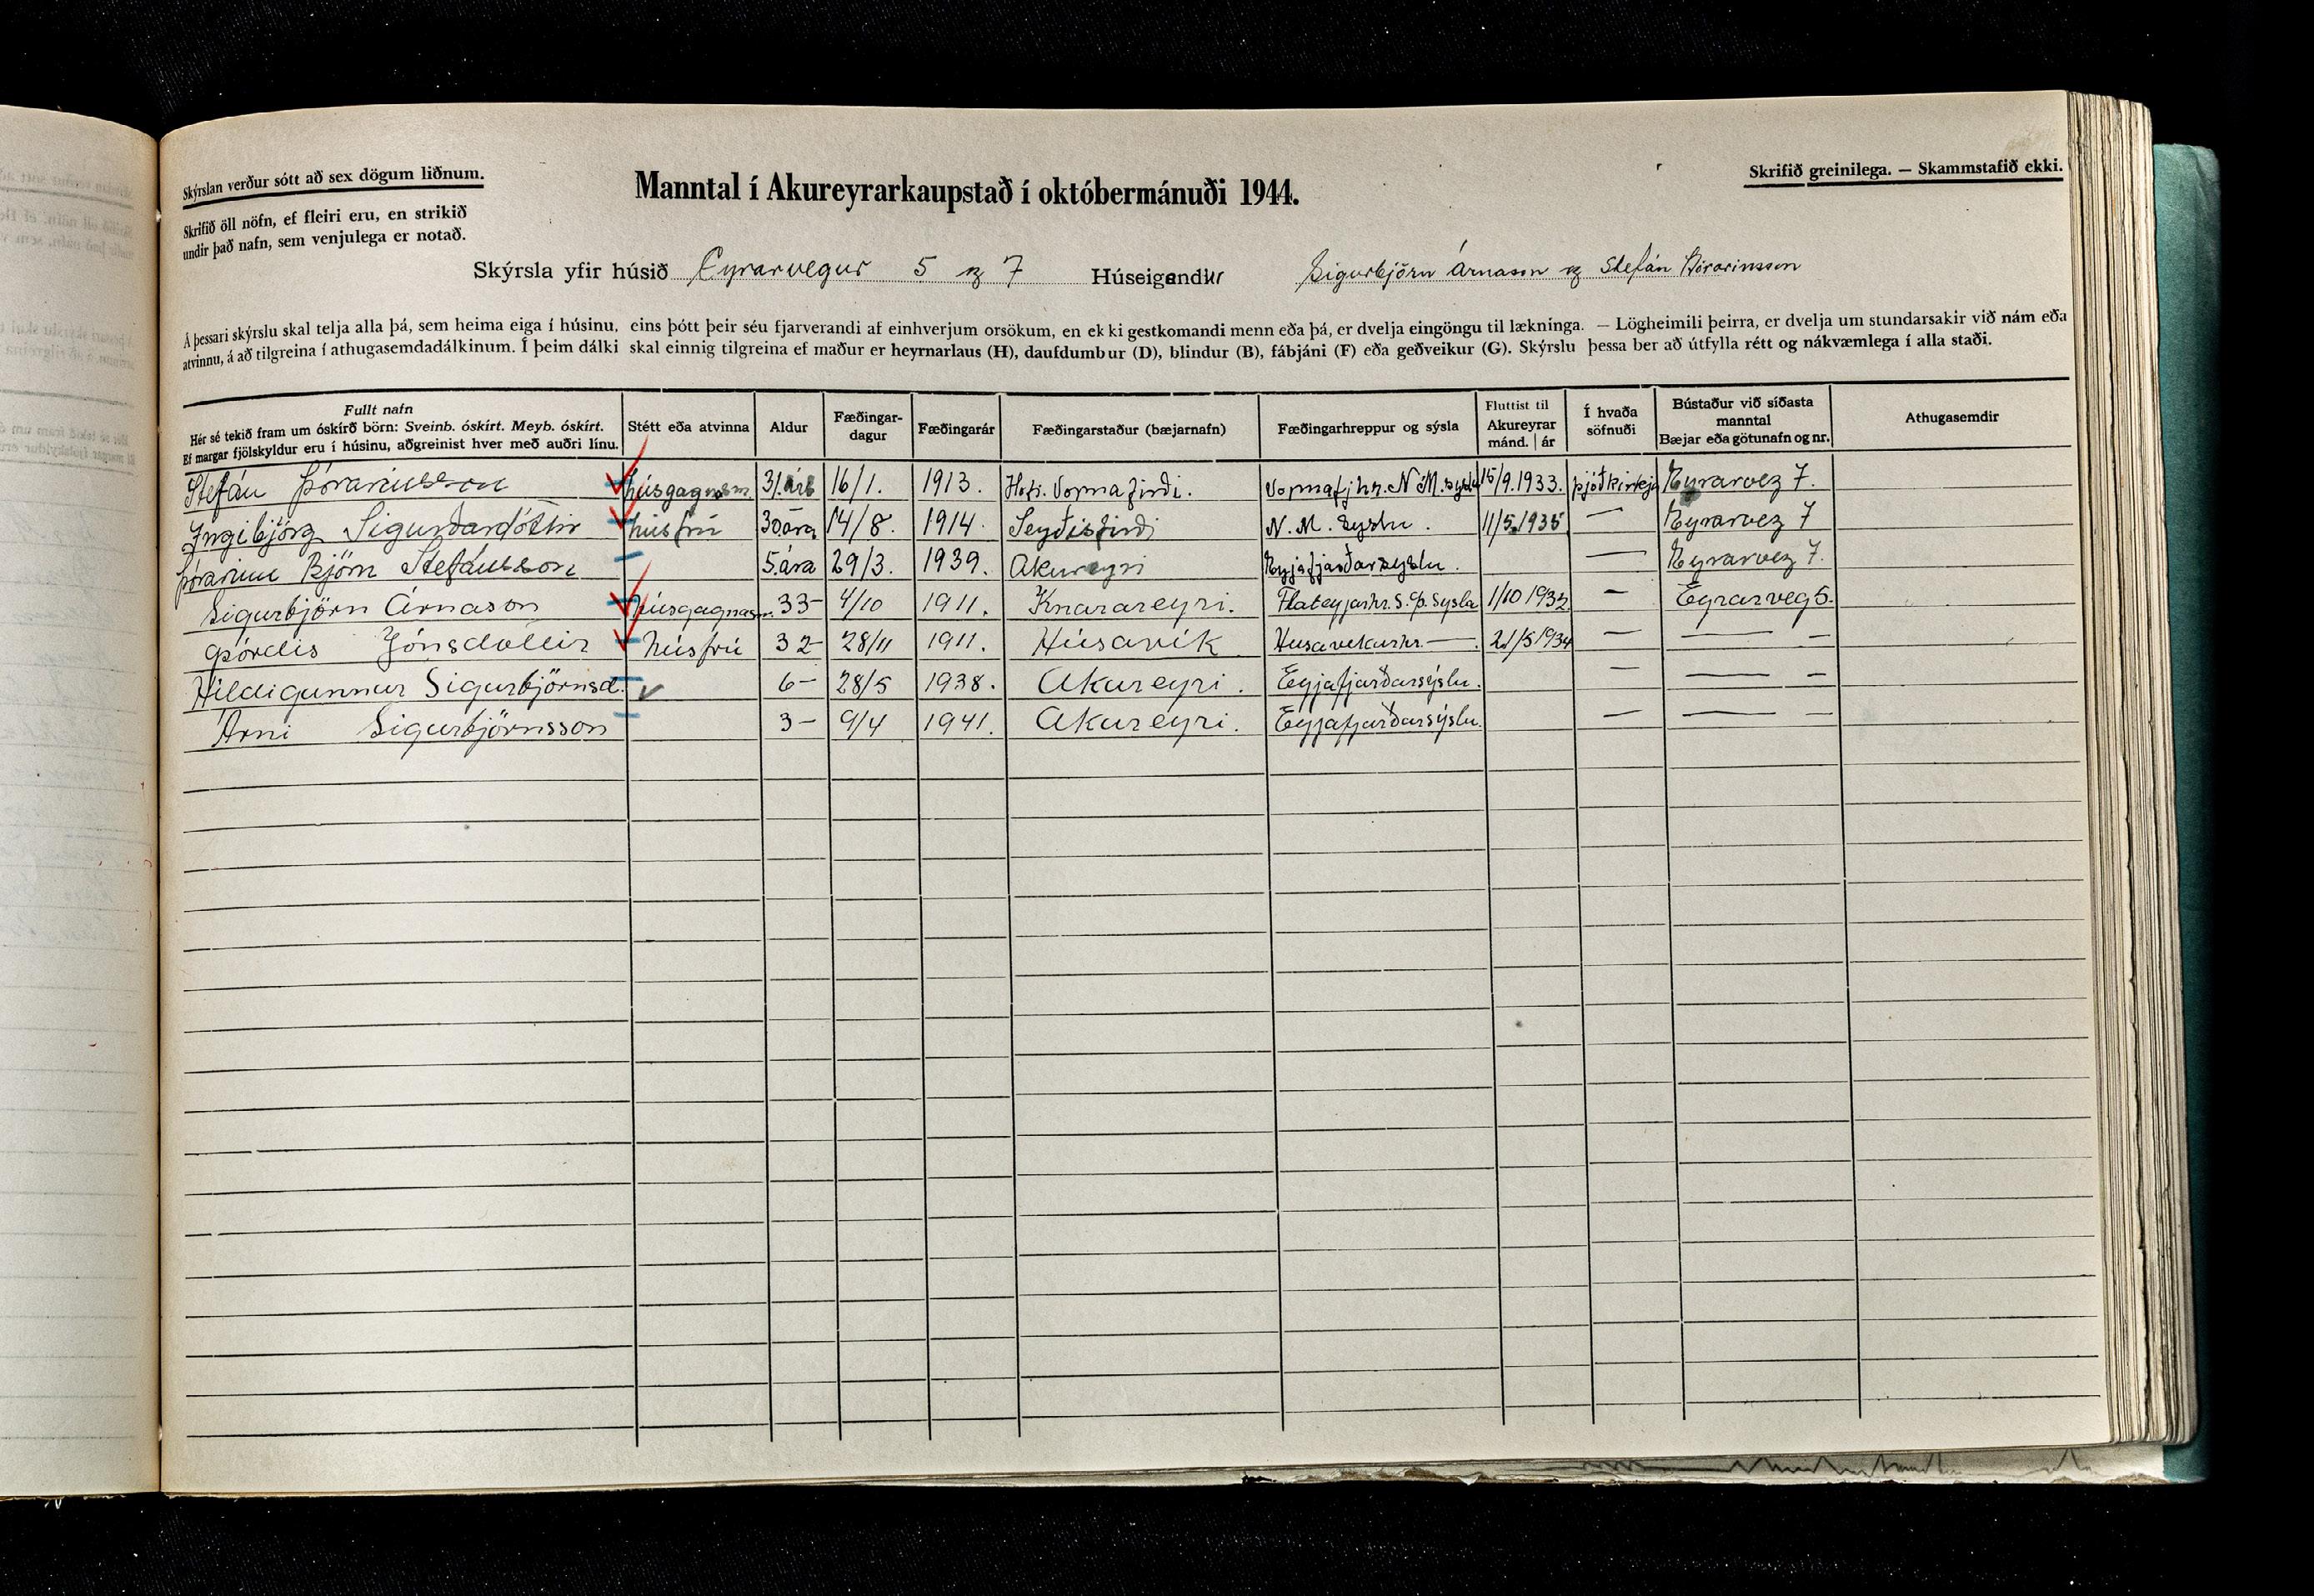 Skýrslan verður sótt að sex dögum liðnum.
Skrifið öll nöfn, ef fleiri eru, en strikið
undir það nafn, sem venjulega er notað.
Manntal í Akureyrarkaupstað í októbermánuði 1944.
Skrifið greinilega. — Skammstafið ekki.
Skýrsla yfir húsið Eyrarvegur 5 og 7 Húseigendur Sigurbjörn Árnason og Stefán Þórarinsson
Á þessari skýrslu skal telja alla þá, sem heima eiga í húsinu, eins þótt þeir séu fjarverandi af einhverjum orsökum, en ekki gestkomandi menn eða þá, er dvelja eingöngu til lækninga. — Lögheimili þeirra, er dvelja um stundarsakir við nám eða
atvinnu, á að tilgreina í athugasemdadálkinum. Í þeim dálki skal einnig tilgreina ef maður er heyrnarlaus (H), daufdumbur (D), blindur (B), fábjáni (F) eða geðveikur (G). Skýrslu þessa ber að útfylla rétt og nákvæmlega í alla staði.
Fullt nafn
Hér sé tekið fram um óskírð börn: Sveinb. óskírt. Meyb. óskírt.
Ef margar fjölskyldur eru í húsinu, aðgreinist hver með auðri línu.
Stétt eða atvinna
Aldur
Fæðingar-
dagur
Fæðingarár
Fæðingarstaður (bæjarnafn)
Fæðingarhreppur og sýsla
Fluttist til
Akureyrar
mánd. | ár
Í hvaða
söfnuði
Bústaður við síðasta
manntal
Bæjar eða götunafn og nr.
Athugasemdir
Stefán Þórarinsson húsgagnasm. 31. árs 16/1. 1913. Hofi. Vopnafirði. Vopnafj.hr. N.M.syslu 15/9.1933. þjóðkirkja Eyrarveg 7.
Ingibjörg Sigurðardóttir húsfrú 30 ára 14/8. 1914. Seyðisfirði N. M. syslu. 11/5.1935 — Eyrarveg 7
Þórarinn Björn Stefánsson 5. ára 29/3. 1939. Akureyri Eyjafjarðarsyslu. — Eyrarveg 7.
Sigurbjörn Árnason húsgagnasm. 33 — 4/10 1911. Knarareyri. Flateyjarhr. S. Þ. Sysla 1/10 1932 — Eyrarveg 5.
Þórdís Jónsdóttir húsfrú 32 — 28/11 1911. Húsavík Húsavíkurhr. — 21/5 1934 — — —
Hildigunnur Sigurbjörnsd. 6 — 28/5 1938. Akureyri. Eyjafjarðarsýslu. — — —
Árni Sigurbjörnsson 3 — 9/4 1941. Akureyri. Eyjafjarðarsýslu. — — —